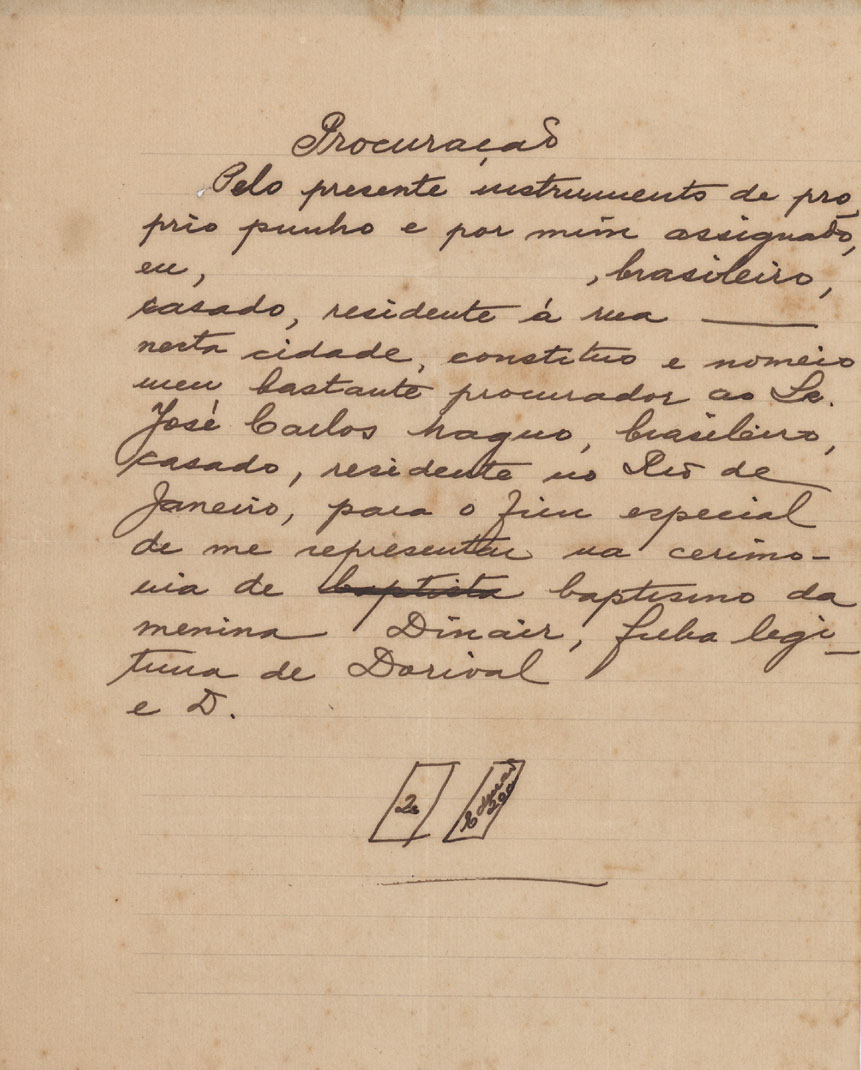 Procuração
Pelo presente instrumento de pro
prio punho e por mim assignado,
eu, , brasileiro,
casado, residente á rua ———
nesta cidade, constituo e nomeio
meu bastante procurador ao Sr.
José Carlos Magno, brasileiro,
casado, residente no Rio de
Janeiro, para o fim especial
de me representar na cerimo-
nia de baptista baptismo da
menina Dinair, filha legi-
tima de Dorival
e D.
2$ Educação
200